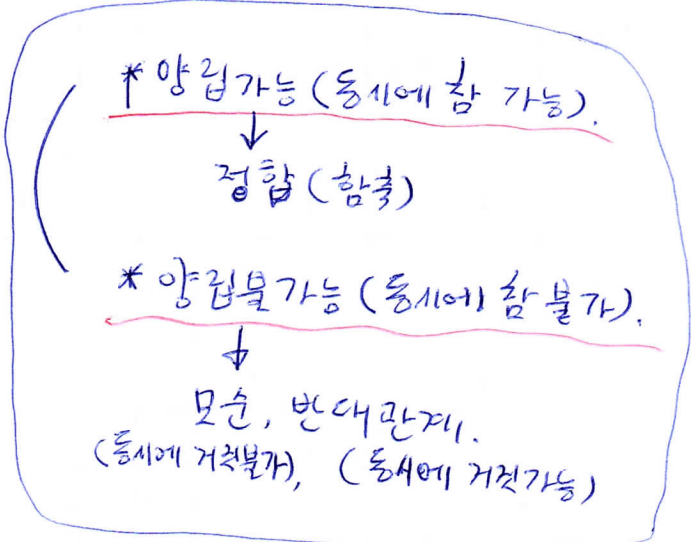 * 양립가능 (동시에 참 가능).
↓
정합 (함축)
* 양립불가능 (동시에 참 불가).
↓
모순, 반대관계.
(동시에 거짓불가), (동시에 거짓가능)